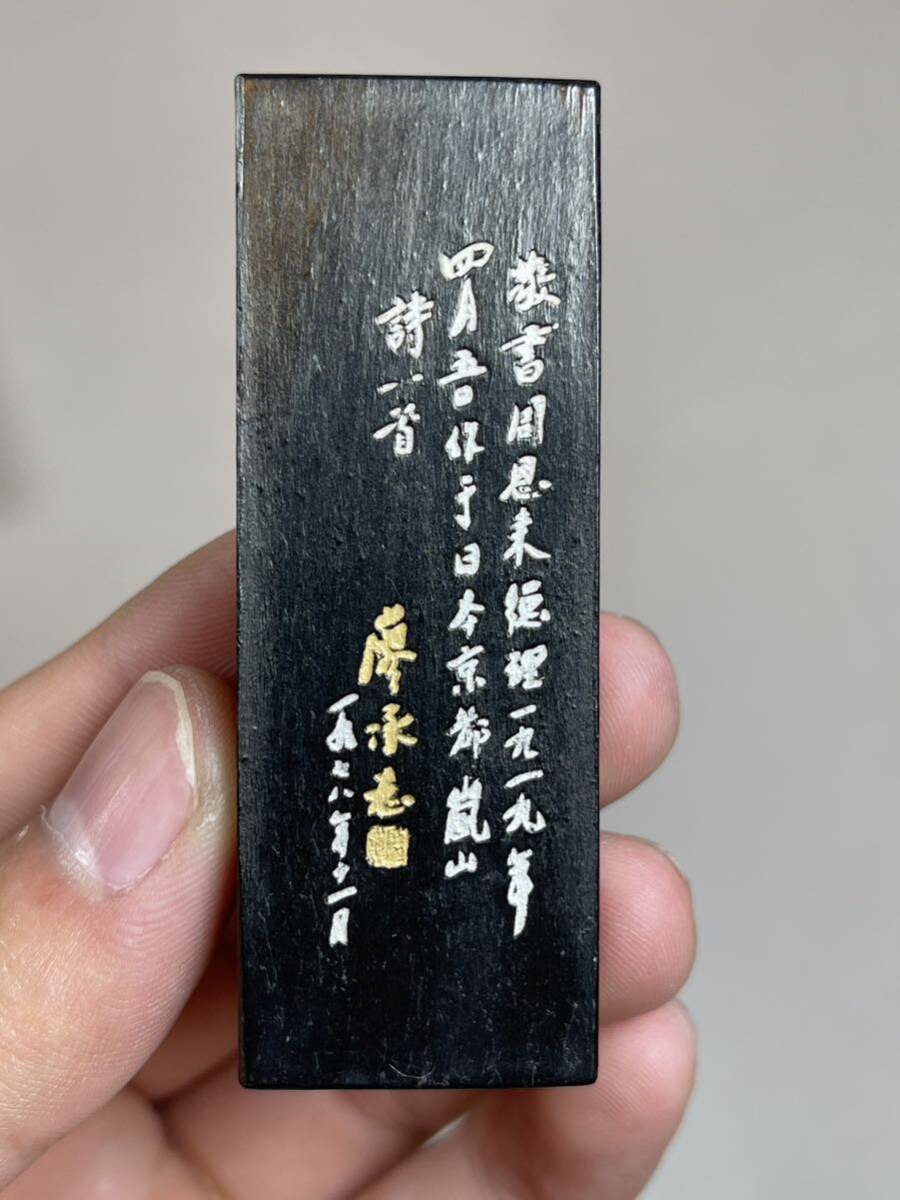 敬書周恩来總理一九一九年
四月五日作于日本京都嵐山
詩一首
廖承志
一九七八年十一月